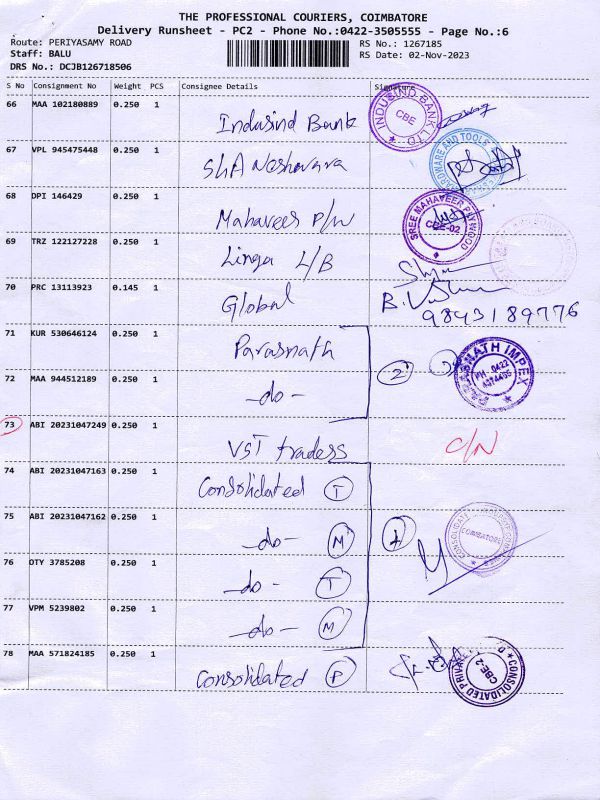 THE PROFESSIONAL COURIERS, COIMBATORE
Delivery Runsheet - PC2 - Phone No.:0422-3505555 - Page No.:6
Route: PERIYASAMY ROAD
RS No.: 1267185
Staff: BALU
RS Date: 02-Nov-2023
DRS No.: DCJB126718506
S No Consignment No Weight PCS Consignee Details Signature
66 MAA 102180889 0.250 1 Indusind Bank
INDUSIND BANK LTD. CBE
67 VPL 945475448 0.250 1
HARDWARE AND TOOLS
68 DPI 146429 0.250 1 Mahaveer P/W
SREE MAHAVEER PLYWOOD CBE-02
69 TRZ 122127228 0.250 1 Linga L/B
70 PRC 13113923 0.145 1 Global
9843189776
71 KUR 530646124 0.250 1 Parasnath
2
PARASNATH IMPEX PH 0422
72 MAA 944512189 0.250 1 -do-
73 ABI 20231047249 0.250 1 VST traders C/N
74 ABI 20231047163 0.250 1 Consolidated T
75 ABI 20231047162 0.250 1 -do- M
COIMBATORE
76 OTY 3785208 0.250 1 -do- T
77 VPM 5239802 0.250 1 -do- M
78 MAA 571824185 0.250 1 Consolidated P
CONSOLIDATED CBE-2